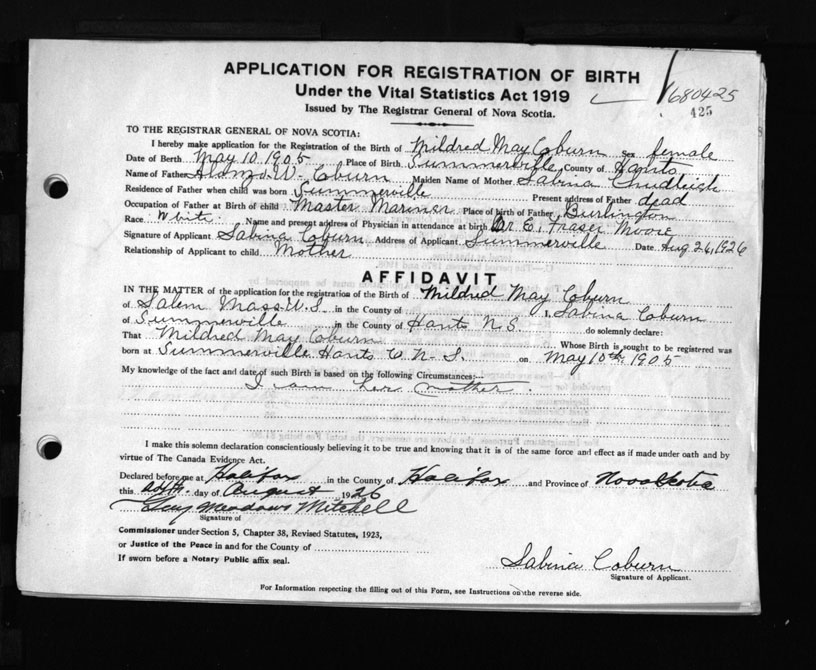 APPLICATION FOR REGISTRATION OF BIRTH
Under the Vital Statistics Act 1919
680425
Issued by The Registrar General of Nova Scotia.
425
TO THE REGISTRAR GENERAL OF NOVA SCOTIA:
I hereby make application for the Registration of the Birth of Mildred May Coburn Sex female
Date of Berth May 10 1905 Place of Birth Summerville County of Hants
Name of Father Alonzo W. Coburn Maiden Name of Mother Sabina
Residence of Father when child was born Summerville Present address of Father dead
Occupation of Father at Birth of child Master Mariner Place of birth of Father Burlington
Race White Name and present address of Physician in attendance at birth Dr E. Fraser Moore
Signature of Applicant Sabina Coburn Address of Applicant Summerville Date Aug 26, 1926
Relationship of Applicant to child Mother
AFFIDAVIT
IN THE MATTER of the application for the registration of the Birth of Mildred May Coburn
of Salem Mass. U.S. in the County of I, Sabina Coburn
of Summerville in the County of Hants N.S. do solemnly declare:
That Mildred May Coburn Whose Birth is sought to be registered was
born at Summerville Hants C. N.S. on May 10th 1905
My knowledge of the fact and date of such Birth is based on the following Circumstances:—
I am her mother.
I make this solemn declaration conscientiously believing it to be true and knowing that it is of the same force and effect as if made under oath and by
virtue of The Canada Evidence Act.
Declared before me at Halifax in the County of Halifax and Province of Nova Scotia
this day of August 1926
Meadows Mitchell
Signature of
Commissioner under Section 5, Chapter 38, Revised Statutes, 1923,
or Justice of the Peace in and for the County of
If sworn before a Notary Public affix seal.
Sabina Coburn
Signature of Applicant.
For Information respecting the filling out of this Form, see Instructions on the reverse side.